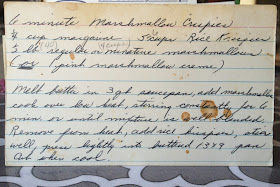 6 minute Marshmallow Crispies
¼ cup margarine 5 cups Rice Krispies
regular or miniature marshmallows
(or 1 pint marshmallow creme)
Melt butter in 3 qt saucepan, add marshmallows
cook over low heat, stirring constantly for 6
min or until mixture is well blended.
Remove from heat, add rice krispies, stir
well, press lightly into buttered 13x9 pan
Cut when cool.